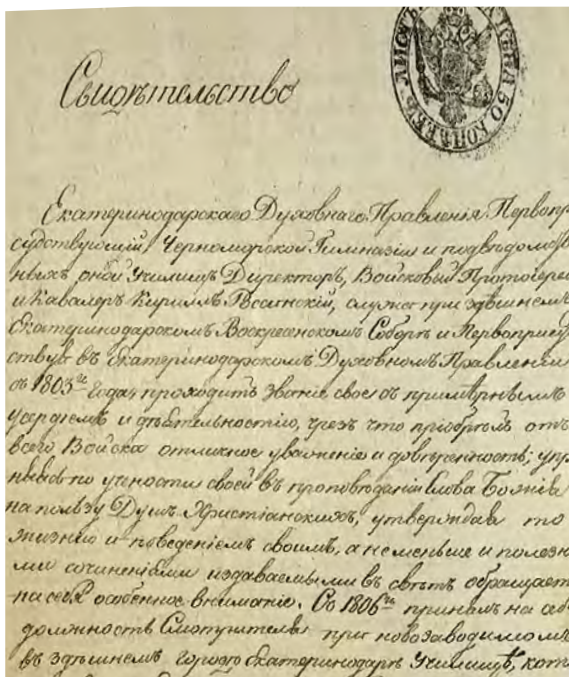 ЛИСТЪ ЦѢНА 50 КОПѢЕКЪ
Свидѣтельство
Екатеринодарскаго Духовнаго Правленія Первопри
судствующій, Черноморской Гимназіи и подвѣдомствен
ныхъ оной Училищъ Директоръ, Войсковый Протоіерей
и Кавалеръ Кириллъ Россинскій, служа при здѣшнемъ
Екатеринодарскомъ Воскресенскомъ Соборѣ и Первоприсуд
ствуя въ Екатеринодарскомъ Духовномъ Правленіи
съ 1803го года, проходитъ званіе свое съ примѣрнымъ
усердіемъ и дѣятельностію, чрезъ что пріобрѣлъ отъ
всего Войска отличное уваженіе и довѣренность; упр
по учености своей въ проповѣданіи Слова Божія
на пользу Душъ Христіанскихъ, утверждая то
жизнію и поведеніемъ своимъ, а неменьше и полезны
ми сочиненіями издаваемыми въ свѣтъ обращаетъ
на себя особенное вниманіе. Съ 1806го принялъ на себя
должность Смотрителя при новозаводимомъ
въ здѣшнемъ городѣ Екатеринодарѣ Училищѣ, кот